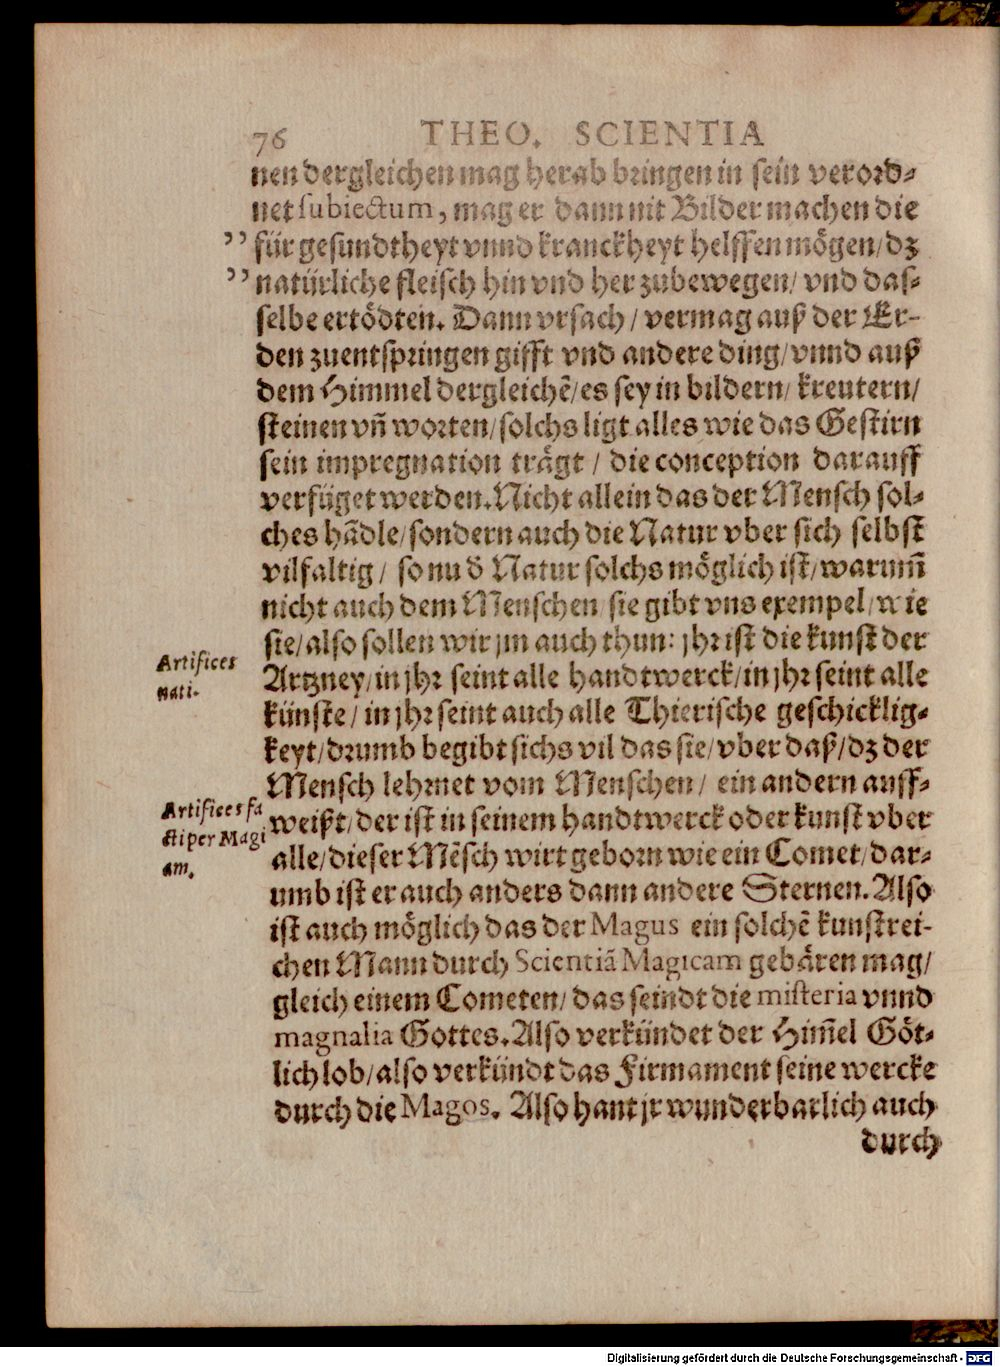 76 THEO. SCIENTIA
nen dergleichen mag herab bringen in sein verord⸗
net subiectum, mag er dann nit Bilder machen die
” für gesundtheyt vnnd kranckheyt helffen mögen/ dz
” natürliche fleisch hin vnd her zubewegen/ vnd das⸗
selbe ertödten. Dann vrsach / vermag auß der Er-
den zuentspringen gifft vnd andere ding/ vnnd auß
dem Himmel dergleichẽ/ es sey in bildern/ kreutern/
steinen vñ worten/ solchs ligt alles wie das Gestirn
sein impregnation trägt / die conception darauff
verfüget werden. Nicht allein das der Mensch sol⸗
ches hãdle/ sondern auch die Natur vber sich selbst
vilfaltig / so nu ð Natur solchs möglich ist/ warum̃
nicht auch dem Menschen/ sie gibt vns exempel/ wie
sie/ also sollen wir jm auch thun: jhr ist die kunst der
Artifices
nati.
Artzney/ in jhr seint alle handtwerck/ in jhr seint alle
künste / in jhr seint auch alle Thierische geschicklig⸗
keyt/ drumb begibt sichs vil das sie/ vber daß/ dz der
Mensch lehrnet vom Menschen / ein andern auff⸗
Artifices fa
cti per Magi
am.
weißt/ der ist in seinem handtwerck oder kunst vber
alle/ dieser Mẽsch wirt geborn wie ein Comet/ dar⸗
umb ist er auch anders dann andere Sternen. Also
ist auch möglich das der Magus ein solchẽ kunstrei-
chen Mann durch Scientiã Magicam gebären mag/
gleich einem Cometen/ das seindt die misteria vnnd
magnalia Gottes. Also verkündet der Him̃el Göt⸗
lich lob/ also verkündt das Firmament seine wercke
durch die Magos. Also hant jr wunderbarlich auch
durch
Digitalisierung gefördert durch die Deutsche Forschungsgemeinschaft - DFG